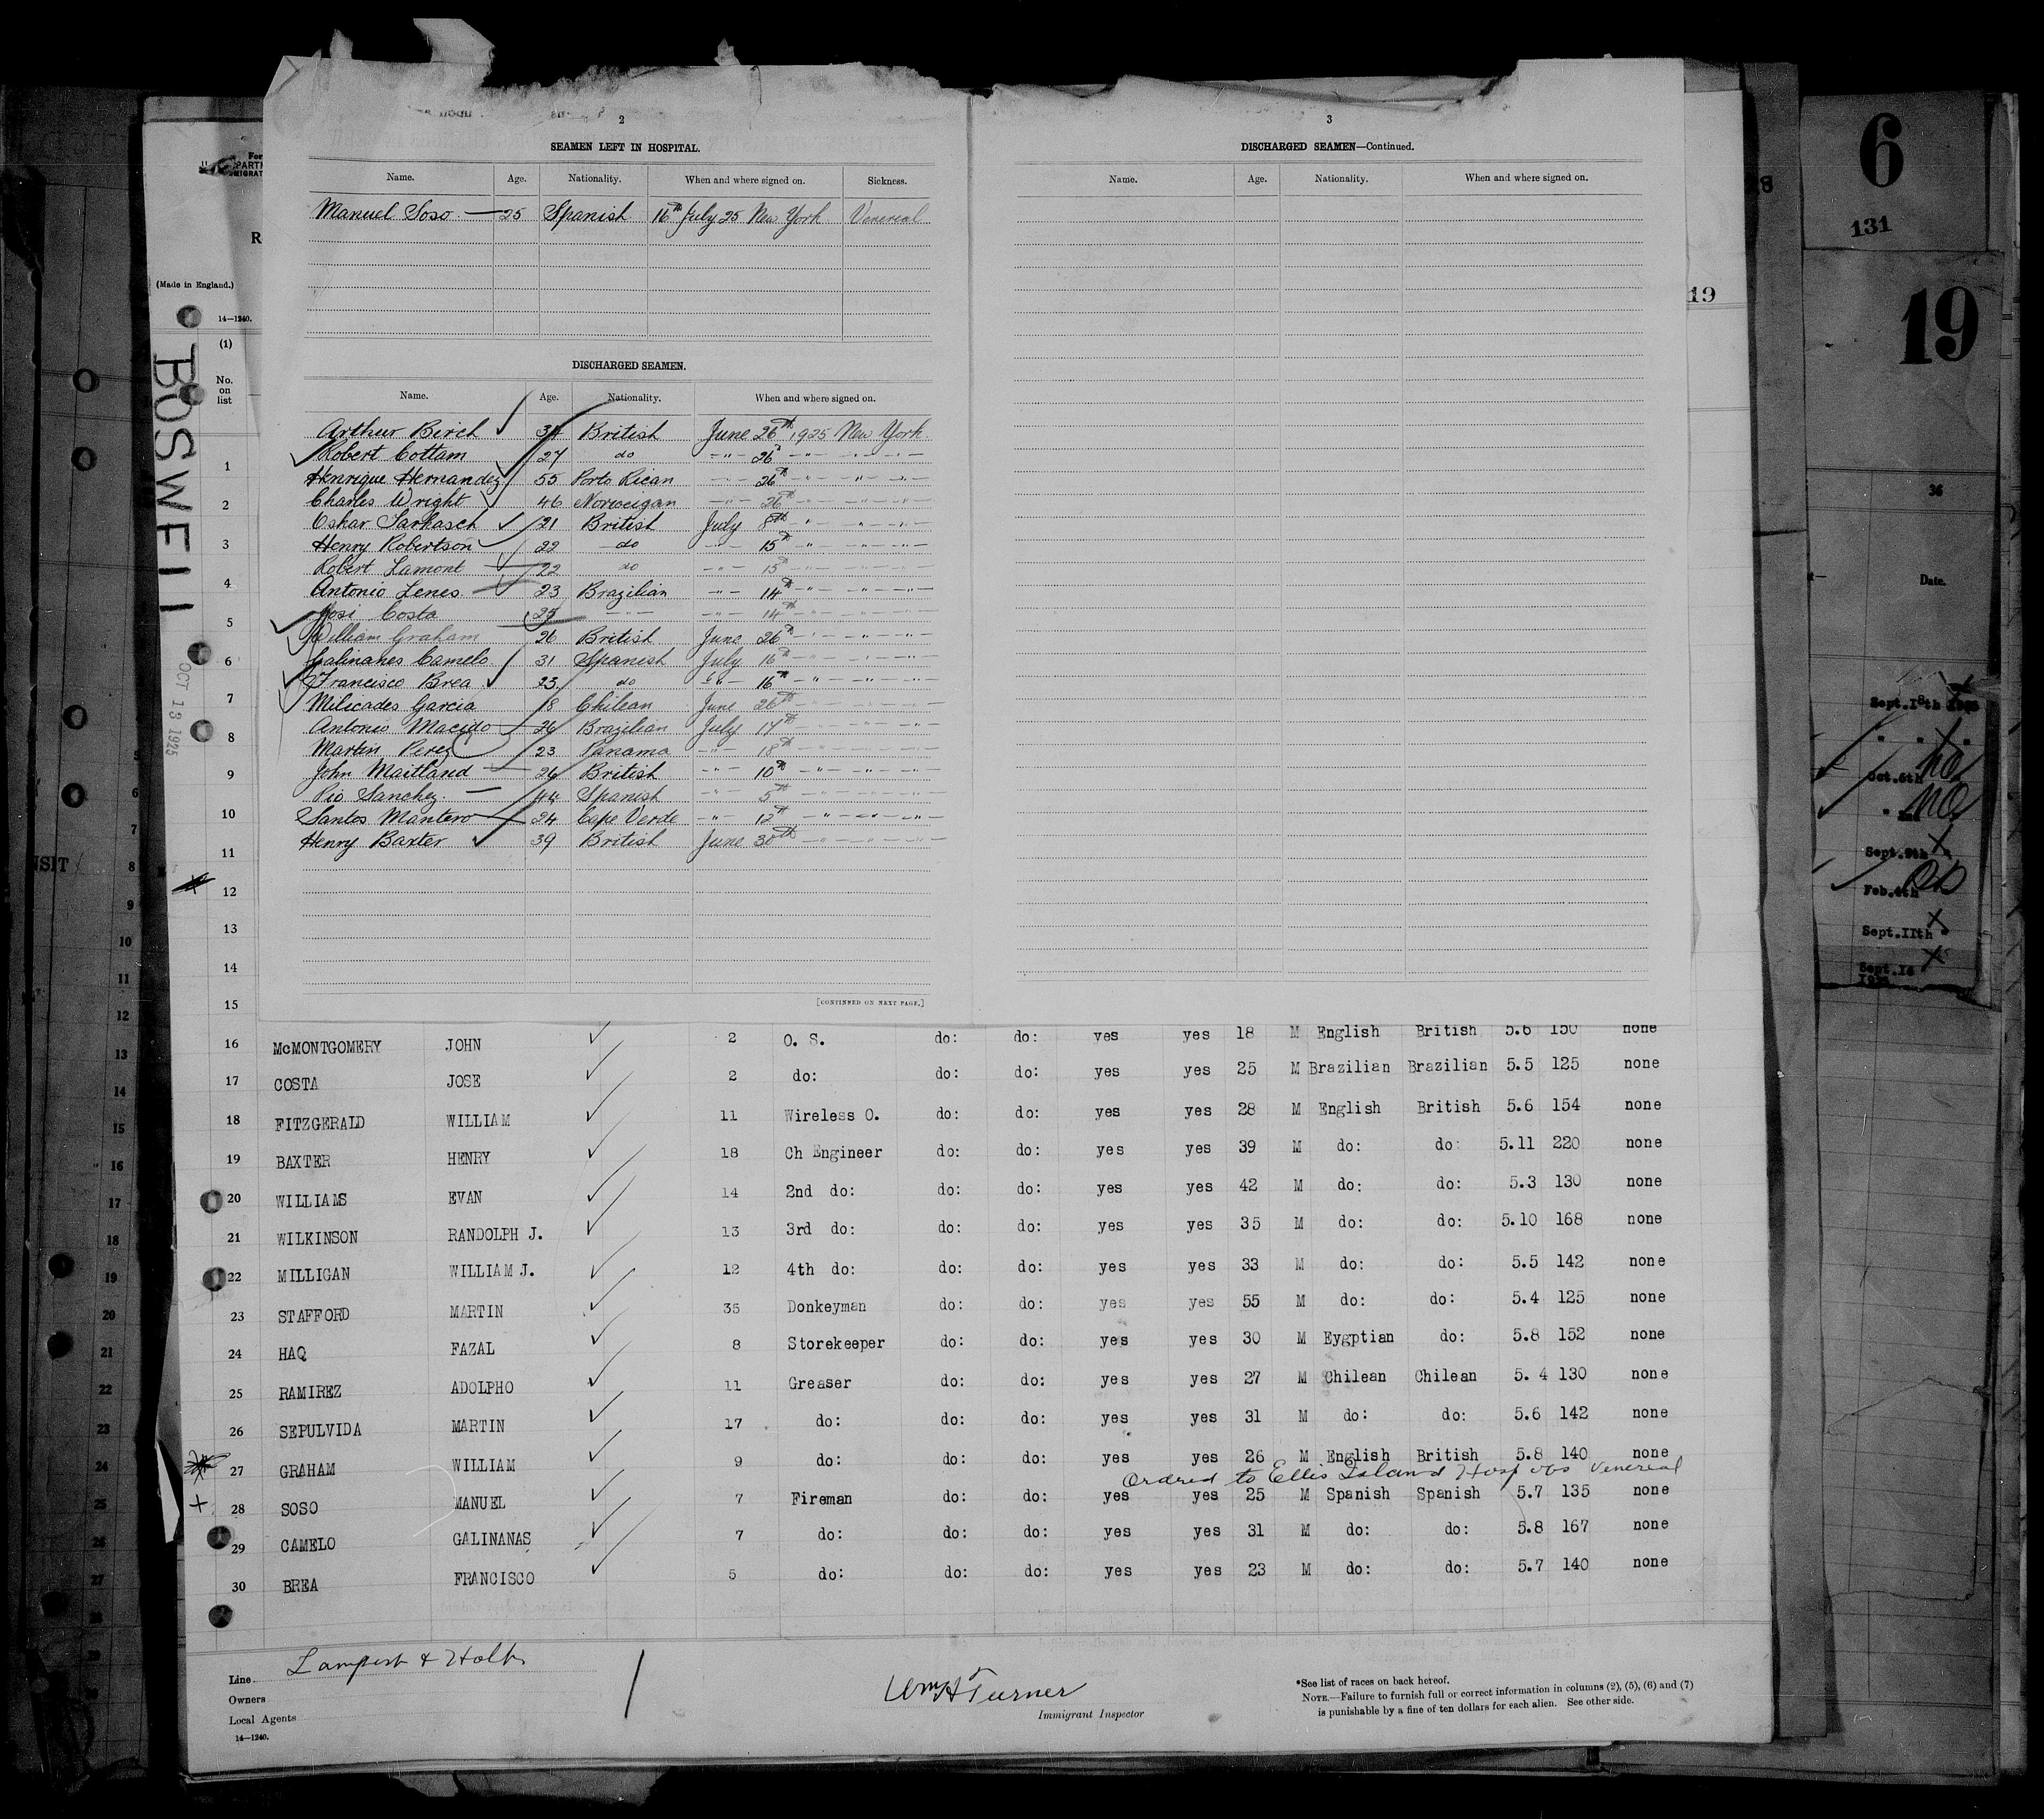 2
SEAMEN LEFT IN HOSPITAL.
Name. Age. Nationality. When and where signed on. Sickness.
Manuel Soso — 25 Spanish 16th July 25 New York Venereal
DISCHARGED SEAMEN.
Name. Age. Nationality. When and where signed on.
Arthur Birch 34 British June 26th 1925 New York
Robert Cottam 27 do -"- 26th -"- -"- -"-
Henrique Hernandez 55 Porto Rican -"- 26th -"- -"- -"-
Charles Wright 46 Norweigan -"- 26th -"- -"- -"-
Oskar Sarkasch 21 British July 8th -"- -"- -"-
Henry Robertson 22 do -"- 15th -"- -"- -"-
Robert Lamont 22 do -"- 15th -"- -"- -"-
Antonio Lenes 23 Brazilian -"- 14th -"- -"- -"-
Josi Costa 25 -"- -"- 14th -"- -"- -"-
William Graham 26 British June 26th -"- -"- -"-
Galinanes Camelo 31 Spanish July 16th -"- -"- -"-
Francisco Brea 23 do -"- 16th -"- -"- -"-
Milicades Garcia 18 Chilean June 26th -"- -"- -"-
Antonio Macido 26 Brazilian July 17th -"- -"- -"-
Martin Perez 23 Panama -"- 18th -"- -"- -"-
John Maitland 26 British -"- 10th -"- -"- -"-
Pio Sanchez 44 Spanish -"- 5th -"- -"- -"-
Santos Mantero 24 Cape Verde -"- 12th -"- -"- -"-
Henry Baxter 39 British June 30th -"- -"- -"-
[CONTINUED ON NEXT PAGE.]
3
DISCHARGED SEAMEN—Continued.
Name. Age. Nationality. When and where signed on.
(Made in England.)
14—1240.
(1)
No.
on
list
BOSWELL
OCT 13 1925
1
2
3
4
5
6
7
8
9
10
11
12
13
14
15
16 McMONTGOMERY JOHN 2 O. S. do: do: yes yes 18 M English British 5.6 150 none
17 COSTA JOSE 2 do: do: do: yes yes 25 M Brazilian Brazilian 5.5 125 none
18 FITZGERALD WILLIAM 11 Wireless O. do: do: yes yes 28 M English British 5.6 154 none
19 BAXTER HENRY 18 Ch Engineer do: do: yes yes 39 M do: do: 5.11 220 none
20 WILLIAMS EVAN 14 2nd do: do: do: yes yes 42 M do: do: 5.3 130 none
21 WILKINSON RANDOLPH J. 13 3rd do: do: do: yes yes 35 M do: do: 5.10 168 none
22 MILLIGAN WILLIAM J. 12 4th do: do: do: yes yes 33 M do: do: 5.5 142 none
23 STAFFORD MARTIN 35 Donkeyman do: do: yes yes 55 M do: do: 5.4 125 none
24 HAQ FAZAL 8 Storekeeper do: do: yes yes 30 M Eygptian do: 5.8 152 none
25 RAMIREZ ADOLPHO 11 Greaser do: do: yes yes 27 M Chilean Chilean 5. 4 130 none
26 SEPULVIDA MARTIN 17 do: do: do: yes yes 31 M do: do: 5.6 142 none
27 GRAHAM WILLIAM 9 do: do: do: yes yes 26 M English British 5.8 140 none
Ordred to Ellis Island Hosp obs Venereal
28 SOSO MANUEL 7 Fireman do: do: yes yes 25 M Spanish Spanish 5.7 135 none
29 CAMELO GALINANAS 7 do: do: do: yes yes 31 M do: do: 5.8 167 none
30 BREA FRANCISCO 5 do: do: do: yes yes 23 M do: do: 5.7 140 none
Line Lamport & Holt
Owners
Local Agents
14—1240.
Wm H Turner
Immigrant Inspector
*See list of races on back hereof.
NOTE.—Failure to furnish full or correct information in columns (2), (5), (6) and (7)
is punishable by a fine of ten dollars for each alien. See other side.
6
131
19
19
36
Date.
Sept.18th
Oct.6th
Sept.9th
Feb.4th
Sept.IIth
Sept.16